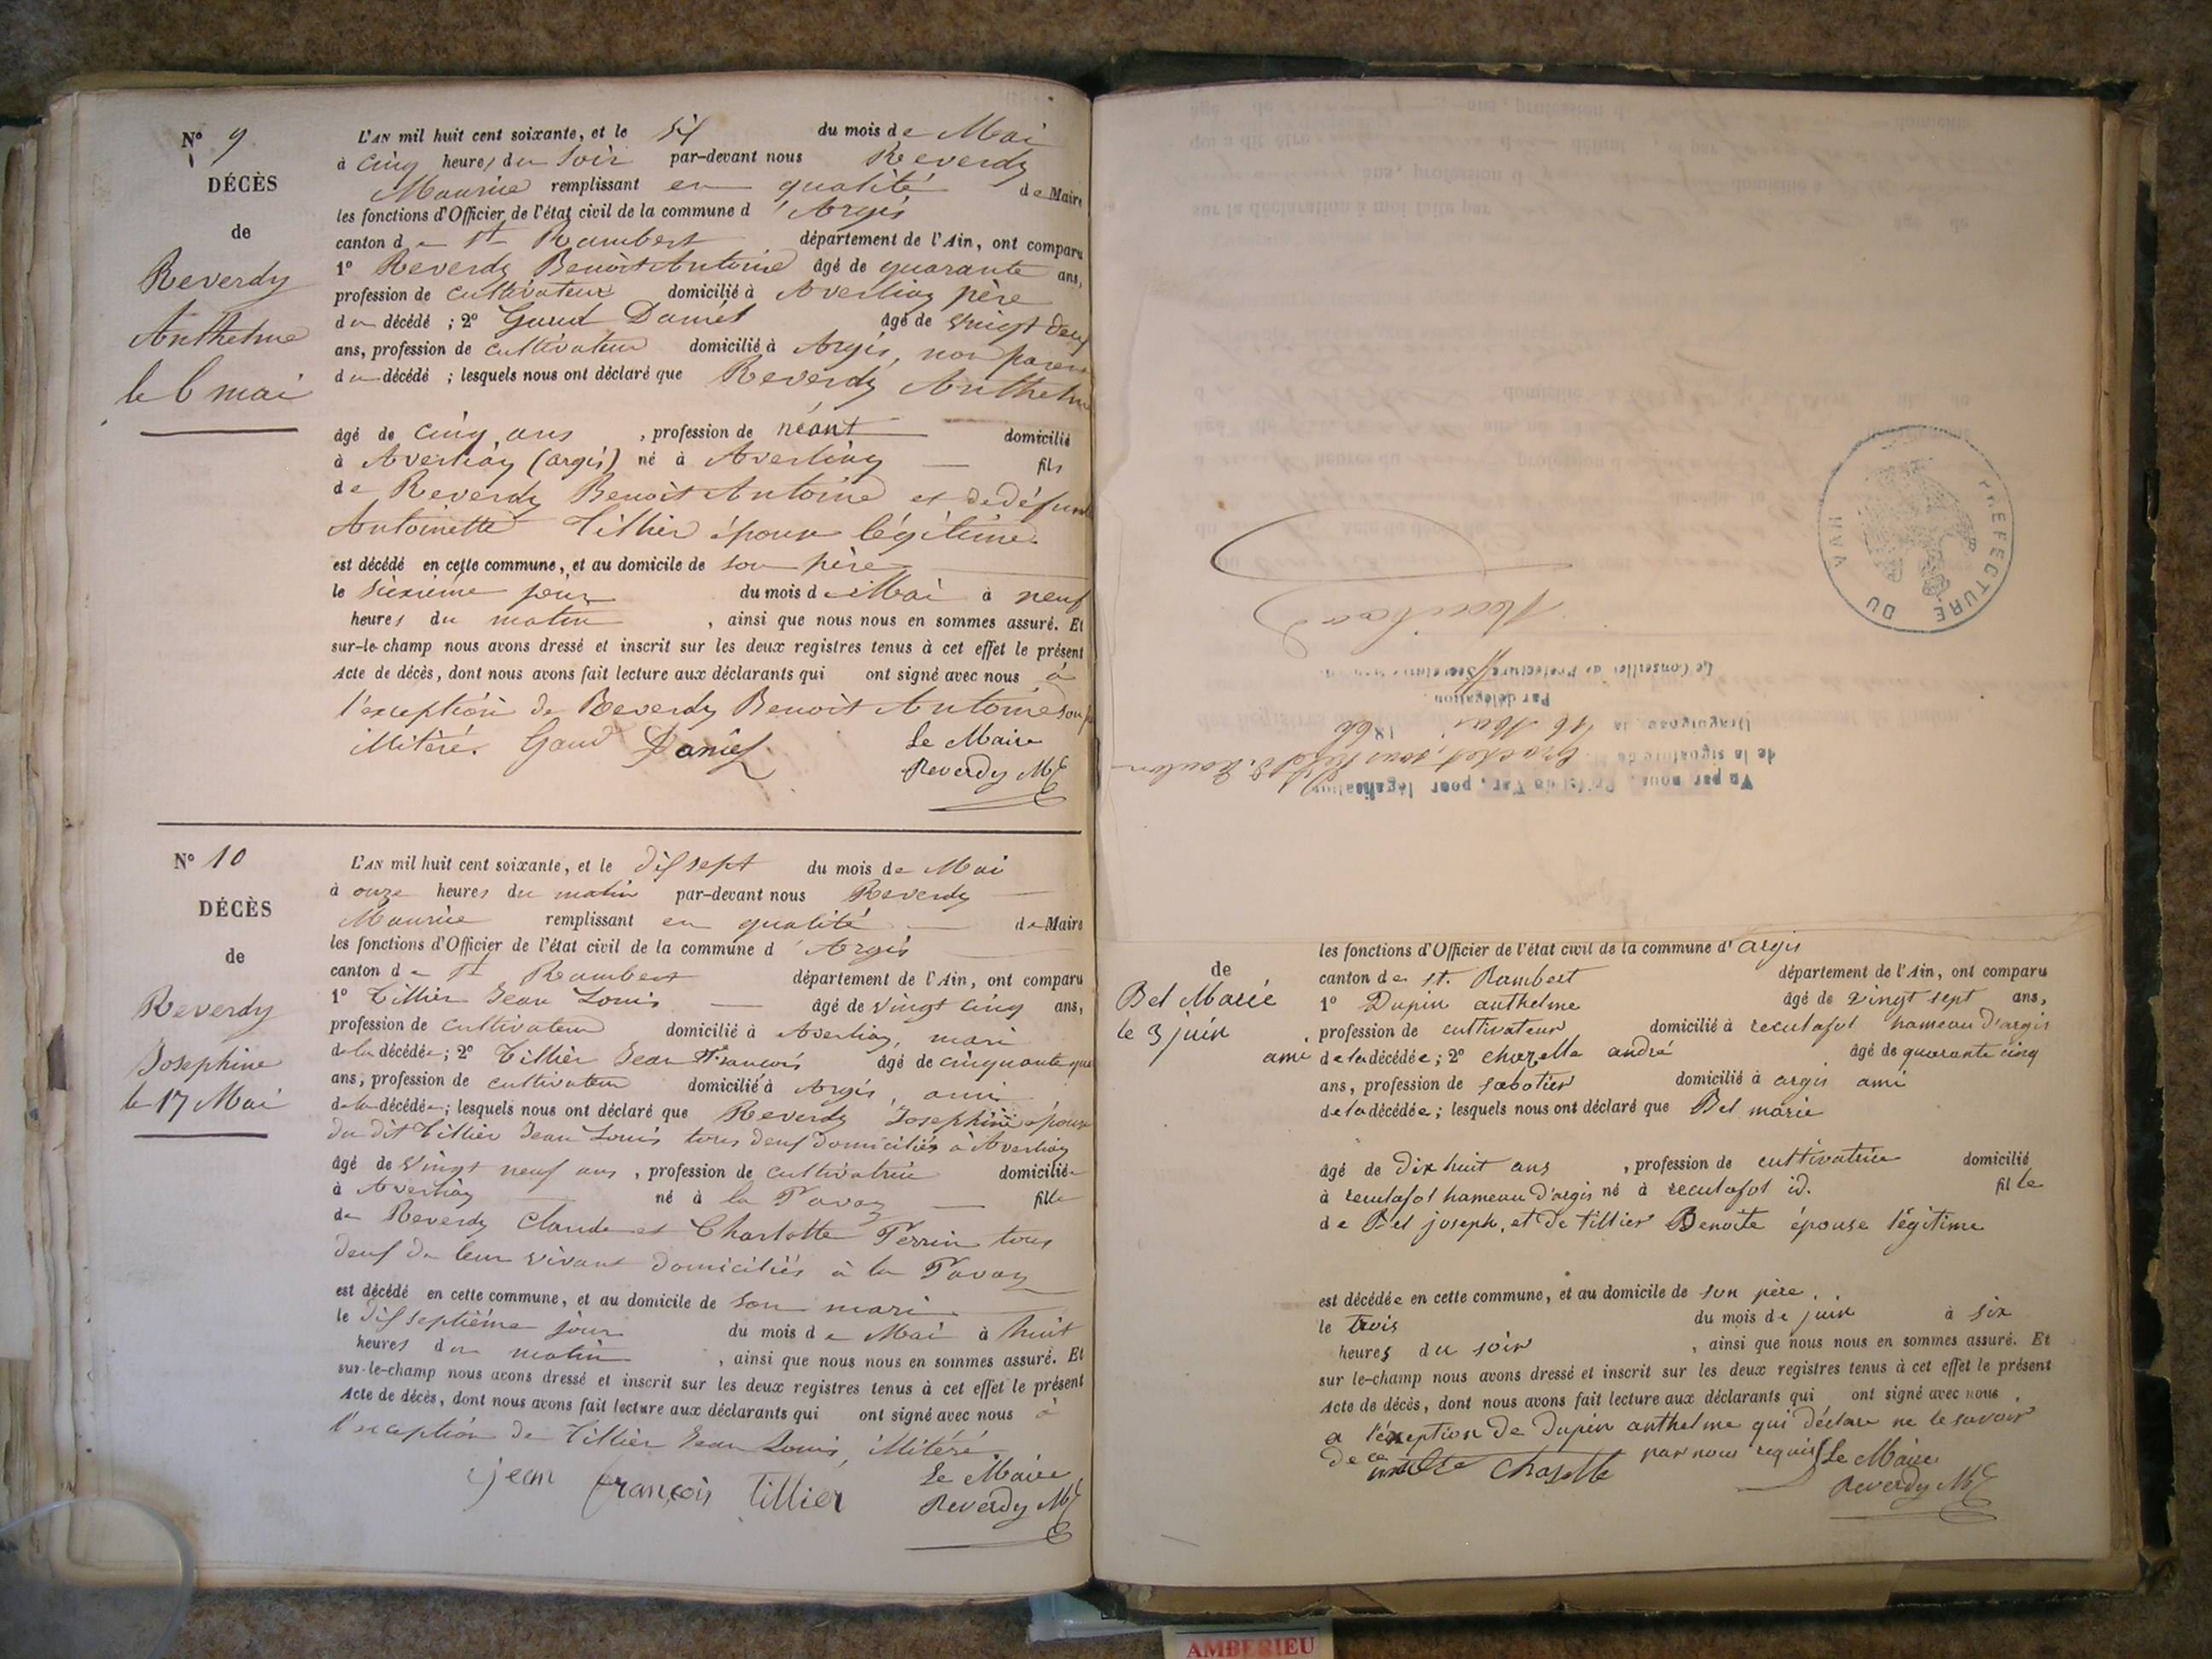 N° 9
DÉCÈS
de
Reverdy
Anthelme
le 6 mai
L'AN mil huit cent soixante, et le Six du mois de Mai
à cinq heures du soir par-devant nous Reverdy
Maurice remplissant en qualité de Maire
les fonctions d'Officier de l'état civil de la commune d'Argis
canton de St Rambert département de l'Ain, ont comparu
1° Reverdy Benoit Antoine âgé de quarante ans,
profession de cultivateur domicilié à Averliaz père
du décédé ; 2° Gaud Daniel âgé de vingt deux
ans, profession de cultivateur domicilié à Argis, non parent
du décédé ; lesquels nous ont déclaré que Reverdy Anthelme
âgé de cinq ans , profession de néant domicilié
à Averliaz (argis) né à Averliaz fils
de Reverdy Benoit Antoine et de défunte
Antoinette Tillier époux légitime
est décédé en cette commune, et au domicile de son père
le sixième jour du mois de Mai à neuf
heures du matin , ainsi que nous nous en sommes assuré. Et
sur-le-champ nous avons dressé et inscrit sur les deux registres tenus à cet effet le présent
Acte de décès, dont nous avons fait lecture aux déclarants qui ont signé avec nous à
l'exception de Reverdy Benoit Antoine son
illitéré. Gaud Daniel Le Maire
Reverdy Mce
N° 10
DÉCÈS
de
Reverdy
Josephine
le 17 Mai
L'AN mil huit cent soixante, et le dix sept du mois de Mai
à onze heures du matin par-devant nous Reverdy
Maurice remplissant en qualité de Maire
les fonctions d'Officier de l'état civil de la commune d'Argis
canton de St Rambert département de l'Ain, ont comparu
1° Tillier Jean Louis âgé de vingt cinq ans,
profession de cultivateur domicilié à Averliaz, mari
de la décédée ; 2° Tillier Jean François âgé de cinquante
ans, profession de cultivateur domicilié à Argis, ami
de la décédée ; lesquels nous ont déclaré que Reverdy Josephine épouse
du dit Tillier Jean Louis tous deux domiciliés à Averliaz
âgé de vingt neuf ans , profession de cultivatrice domicilié
à Averliaz né à la Pavaz fille
de Reverdy Claude et Charlotte Perrin tous
deux de leur vivant domiciliés à la Pavaz
est décédé en cette commune, et au domicile de son mari
le dix septième jour du mois de Mai à huit
heures du matin , ainsi que nous nous en sommes assuré. Et
sur-le-champ nous avons dressé et inscrit sur les deux registres tenus à cet effet le présent
Acte de décès, dont nous avons fait lecture aux déclarants qui ont signé avec nous à
l'exception de Tillier Jean Louis, illitéré.
jean françois tillier Le Maire
Reverdy Mce
PREFECTURE DU VAR
Vu par nous, Préfet du Var, pour légalisation
de la signature de
Draguignan, le 16 Mai 186
Par délégation
Le Conseiller de Préfecture
de
Bel Marie
le 3 juin
les fonctions d'Officier de l'état civil de la commune d'argis
canton de st. Rambert département de l'Ain, ont comparu
1° Dupin anthelme âgé de vingt sept ans,
profession de cultivateur domicilié à reculafol hameau d'argis
ami de la décédée ; 2° chazelle andré âgé de quarante cinq
ans, profession de sabotier domicilié à argis ami
de la décédée ; lesquels nous ont déclaré que Bel marie
âgé de dix huit ans , profession de cultivatrice domicilié
à reculafol hameau d'argis né à reculafol id. fille
de Bel joseph, et de tillier Benoite épouse légitime
est décédée en cette commune, et au domicile de son père.
le trois du mois de juin à six
heures du soir , ainsi que nous nous en sommes assuré. Et
sur le-champ nous avons dressé et inscrit sur les deux registres tenus à cet effet le présent
Acte de décès, dont nous avons fait lecture aux déclarants qui ont signé avec nous .
a l'éxeption de Dupin anthelme qui déclare ne le savoir
de ce par nous requis Le Maire
Chazelle Reverdy Mce
AMBERIEU